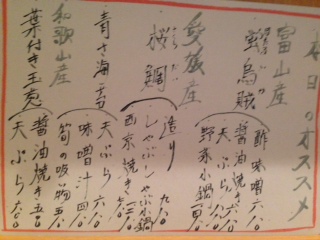 本日のオススメ
富山産
蛍烏賊
酢味噌 六八〇
醤油焼き 六八〇
天ぷら 六八〇
野菜小鍋
愛媛産
桜鯛
造り 九八〇
しゃぶしゃぶ小鍋
西京焼き
天ぷら 六八〇
青さ海苔
味噌汁 四八〇
筍の吸物 五八〇
和歌山産
葉付き玉葱
醤油焼き 五八〇
天ぷら 六〇〇